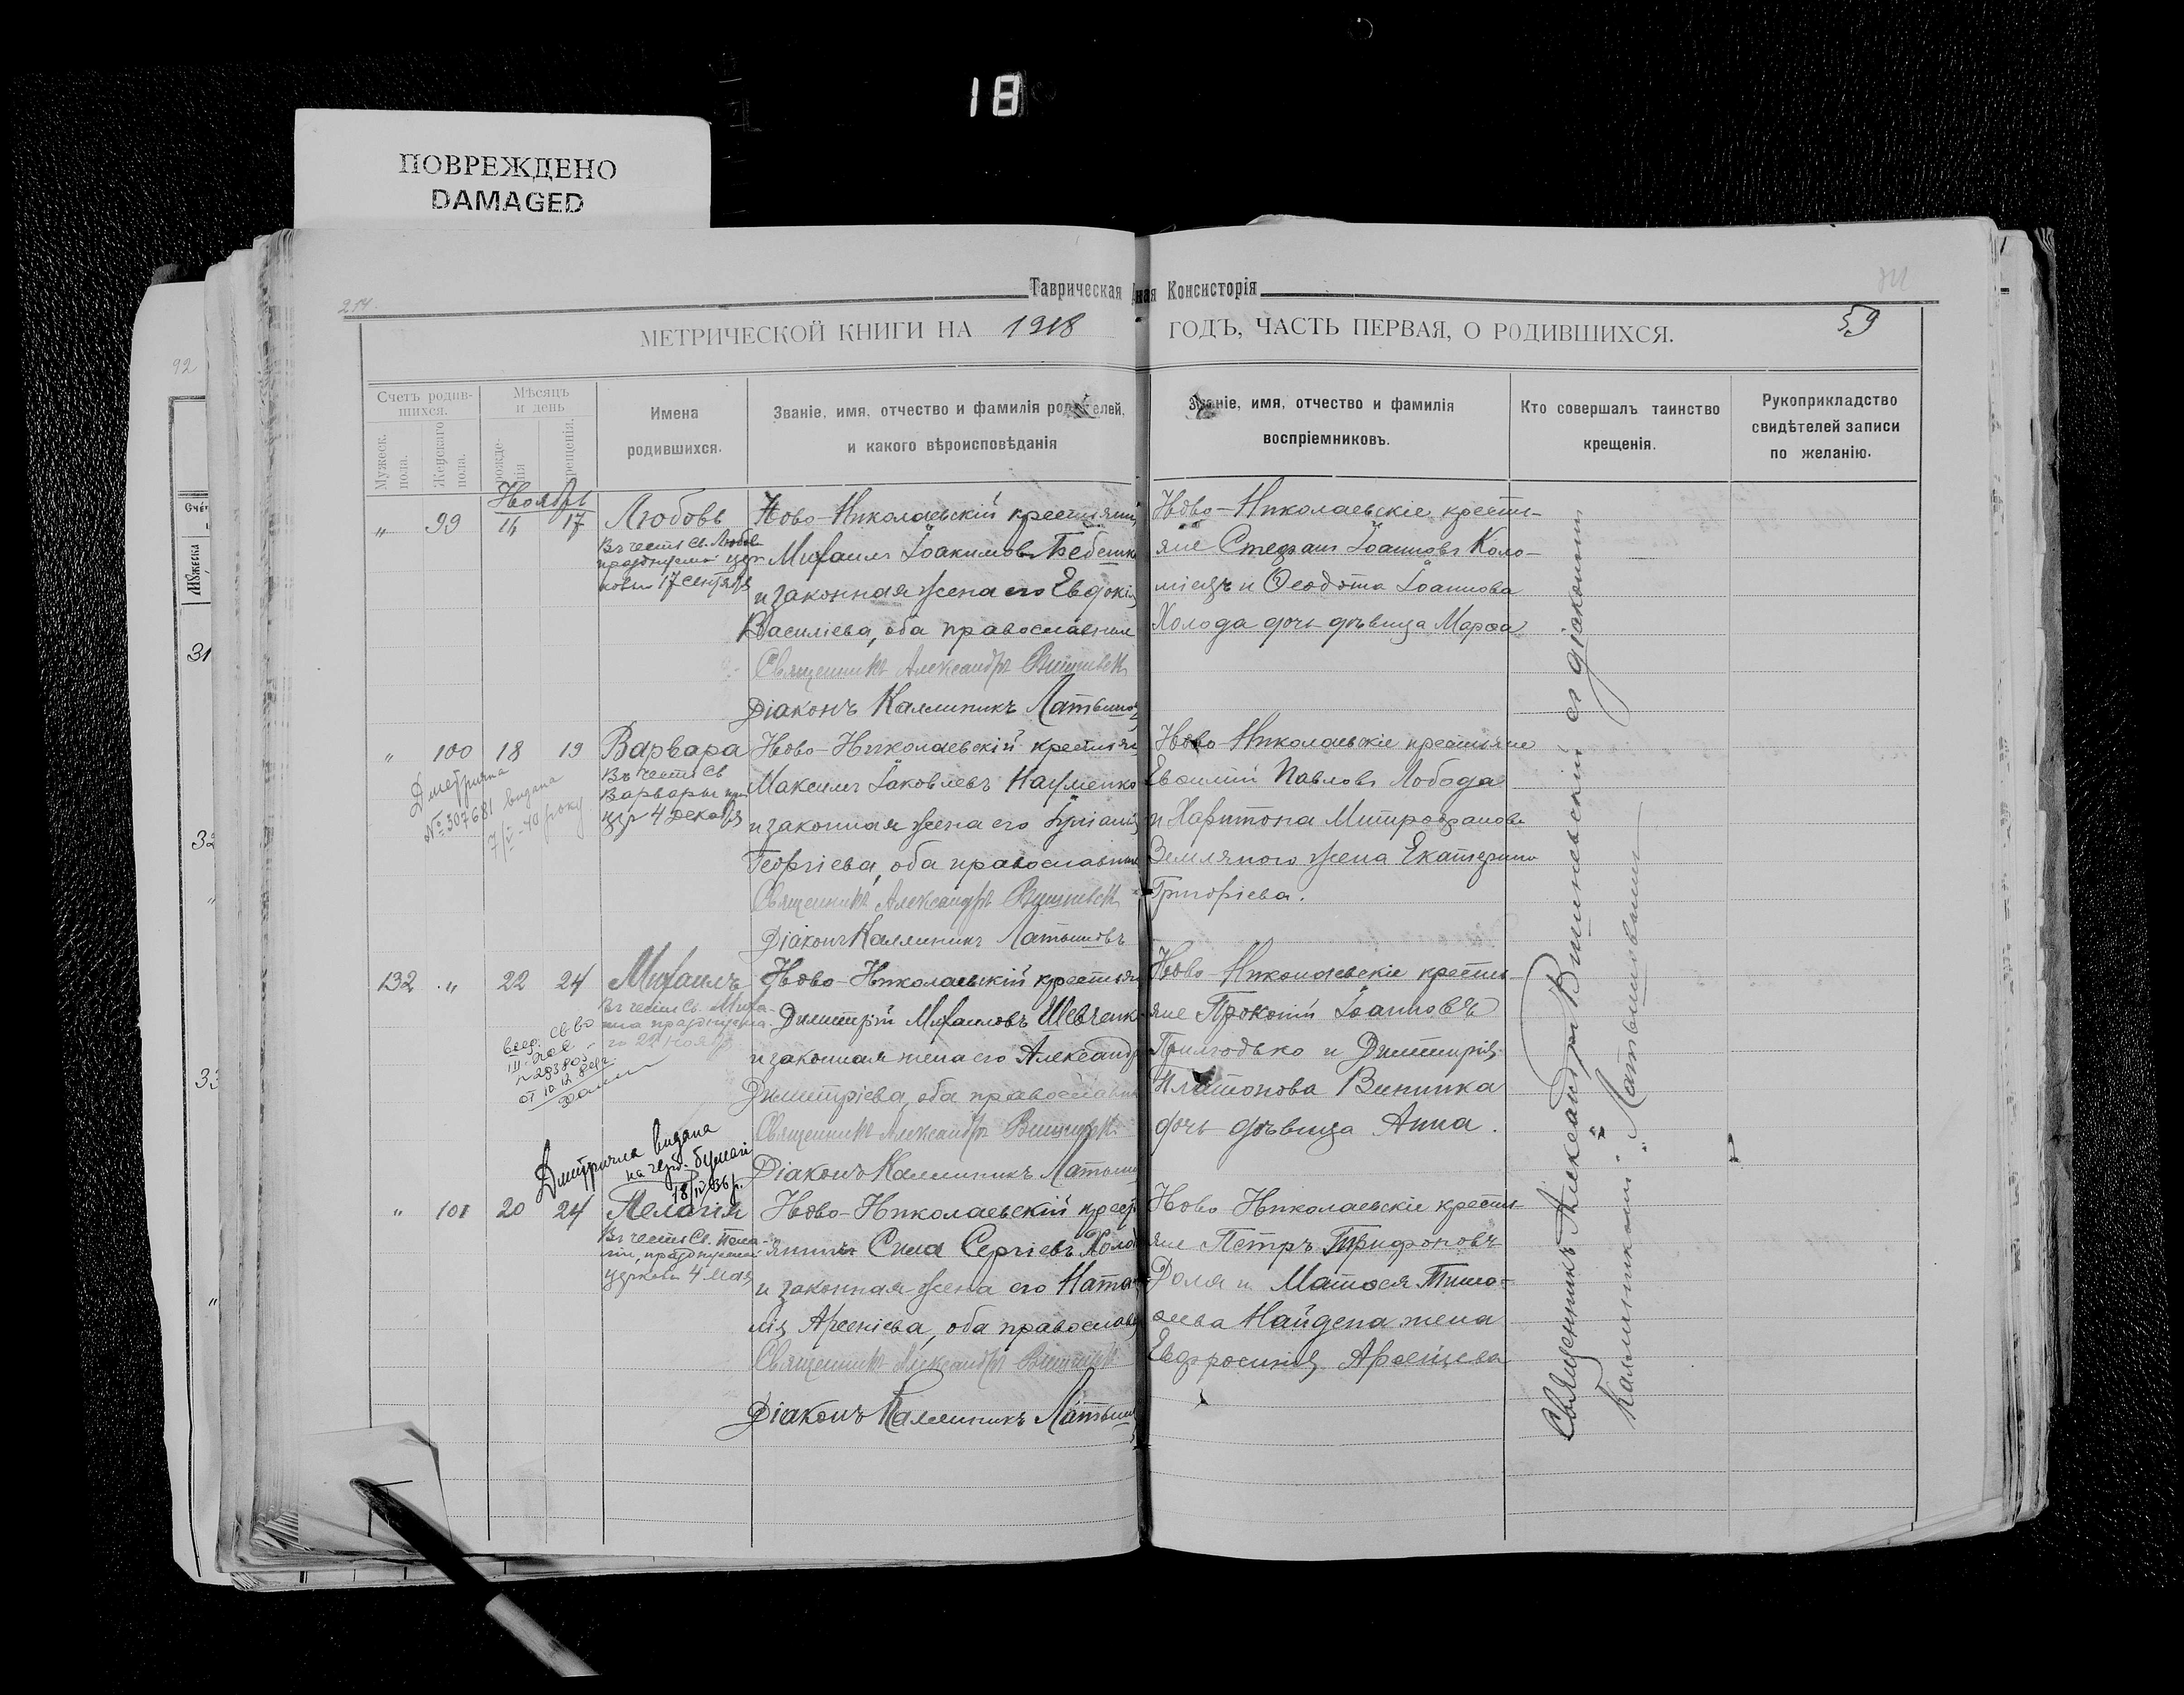 18
ПОВРЕЖДЕНО
DAMAGED
Таврическая ная Консисторія
214.
МЕТРИЧЕСКОЙ КНИГИ НА 1918 ГОДЪ, ЧАСТЬ ПЕРВАЯ, О РОДИВШИХСЯ.
59
92
Счетъ родив-
шихся.
Мужеск. пола.
Женскаго пола.
Мѣсяцъ
и день
рожде-
нія
крещенія.
Имена
родившихся.
Званіе, имя, отчество и фамилія родителей,
и какого вѣроисповѣданія
Званіе, имя, отчество и фамилія
воспріемниковъ.
Кто совершалъ таинство
крещенія.
Рукоприкладство
свидѣтелей записи
по желанію.
Ноябрь
„ 99 14 17 Любовь
Въ честь Св. Любов
празднуемой цер
ковью 17 сентября
Ново-Николаевскій крестьянин
Михаилъ Іоакимовъ Бебешко
и законная жена его Евдокія
Василіева, оба православные
Священникъ Александръ Вишневск
Діаконъ Каллиникъ Латыш
Ново-Николаевскіе крестья-
яне Стефанъ Іоанновъ Коло-
міецъ и Ѳеодота Іоаннова
Холода дочь дѣвица Марѳа
„ 100 18 19 Варвара
Въ честь Св
Варвары пр
цер 4 декабря
Дметрична
№ 307681 видана
7/V-40 року
Ново-Николаевскій крестьян
Максимъ Іаковлевъ Науменко
и законная жена его Іуліанія
Георгіева, оба православные
Священникъ Александръ Вишневск
Діаконъ Каллиникъ Латышовъ
Ново-Николаевскіе крестьяне
Евѳимій Павловъ Лобода
и Харитона Митрофанова
Земляного жена Екатерина
Григорієва.
132 „ 22 24 Михаилъ
Въ честь Св. Миха-
ила празднуема-
го 22 ноября
Ново-Николаевскій крестьян
Димитрій Михаиловъ Шевченк
и законная жена его Александр
Димитріева, оба православные
Священникъ Александръ Вишневск
Діаконъ Каллиникъ Латыш
Ново-Николаевскіе крестья-
яне Прокопій Іоанновъ
Приходько и Димитрія
Платонова Винника
дочь дѣвица Анна.
Дмитрична видана
на герб. бумагі
18/IV 36 р.
„ 101 20 24 Пелагія
Въ честь Св. Пела-
гіи, празднуемой
церковью 4 мая
Ново-Николаевскій крест
янинъ Сила Сергіевъ Холод
и законная жена его Ната
лія Арсеніева, оба православн
Священникъ Александръ Вишневск
Діаконъ Каллиникъ Латыш
Ново Николаевскіе крестья
яне Петръ Трифоновъ
Доля и Матѳея Тимо-
ѳеева Найдена жена
Евфросинія Арсеніева
Священникъ Александръ Вишневскій съ діакономъ
Каллиникомъ Латышовымъ
Мужеска
31
32
33